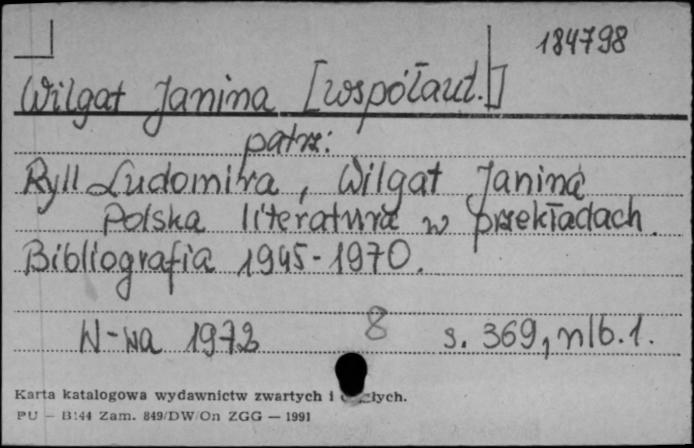 184798
Wilgat Janina [współaut.]
patrz:
Ryll Ludomira, Wilgat Janina
Polska literatura w przekładach.
Bibliografia 1945-1970.
W-wa 1972 8 s. 369, nlb. 1.
Karta katalogowa wydawnictw zwartych i
PU — B144 Zam. 849/DW/On ZGG — 1991